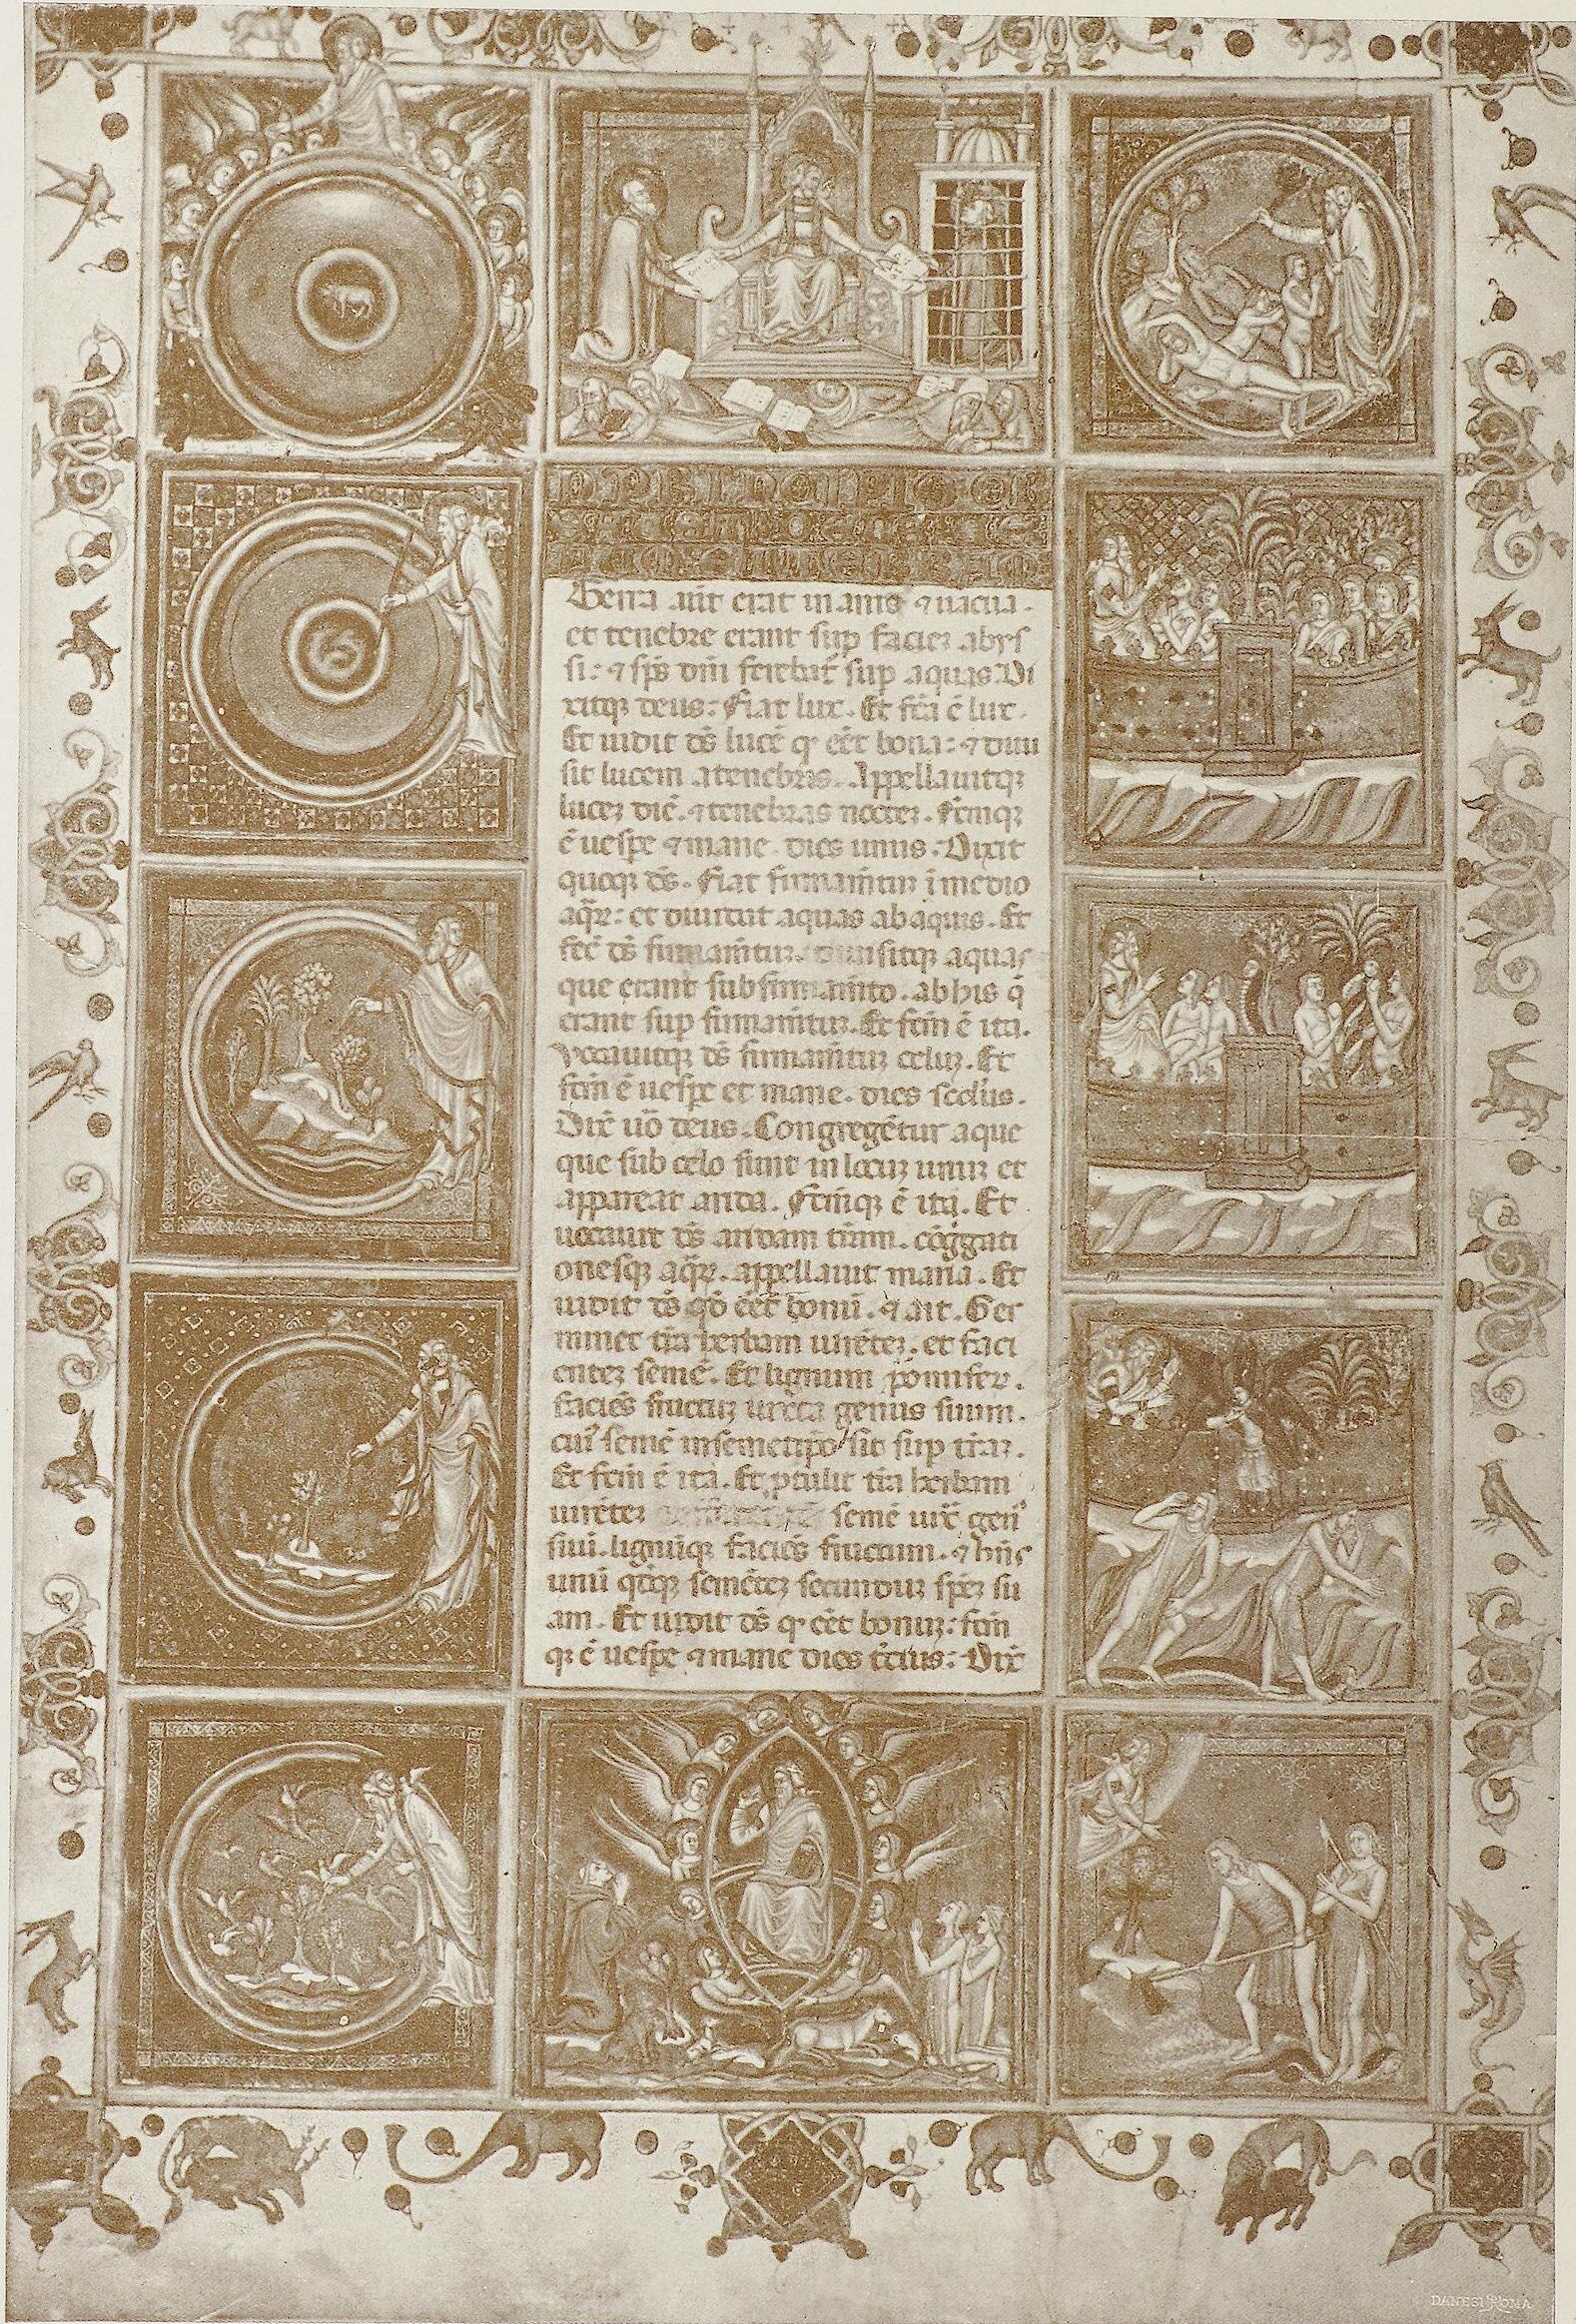 IN PRINCIPIO CRE
Terra aut erat inanis ⁊ uacua.
et tenebre erant sup faciez abys
si: ⁊ sp̄s dn̄i ferebat̄ sup aquas. Di
xitqꝫ deus: Fiat lux. Et fc̄a ē lux.
Et uidit ds̄ lucē qr̄ eēt bona: ⁊ diui
sit lucem a tenebris. Appellauitqꝫ
lucez diē. ⁊ tenebras noctez. Fc̄mqꝫ
ē uespe ⁊ mane. dies unus. Dixit
quoqꝫ ds̄. Fiat firmam̄tuz ī medio
aq̄rꝫ: et diuidat aquas ab aquis. Et
fēc ds̄ firmam̄tuz. diuisitqꝫ aquas
que erant sub firmam̄to. ab his q̄
erant sup firmam̄tuz. Et fc̄m ē ita.
Vocauitqꝫ ds̄ firmam̄tuz celuz. Et
fc̄m ē uespe et mane. dies scd̄us.
Dix̄ uō deus. Congregētur aque
que sub celo sunt in locuz unuz et
appareat arida. Fc̄mqꝫ ē ita. Et
uocauit ds̄ aridam t̄ram. cōg̅gati
onesqꝫ aq̄rꝫ. appellauit maria. Et
uidit ds̄ qd̄ eēt bonū. ⁊ ait. Ger
minet t̄ra herbam uirētez. et faci
entez semē. Et lignum pomifer.
faciēs fructuz iuxta genus suum.
cui᾽ semē in semetipo sit sup t̄raz.
Et fc̄m ē ita. Et p̄tulit t̄ra herbam
uirētez semē iux̄ gen᾽
suū. lignūqꝫ faciēs fructum. ⁊ hn̄s
unū qdqꝫ semētez secunduz spēz su
am. Et uidit ds̄ qr̄ eēt bonuz: fc̄m
qꝫ ē uespe ⁊ mane dies tc̄ius: Dix̄
DANESI ROMA